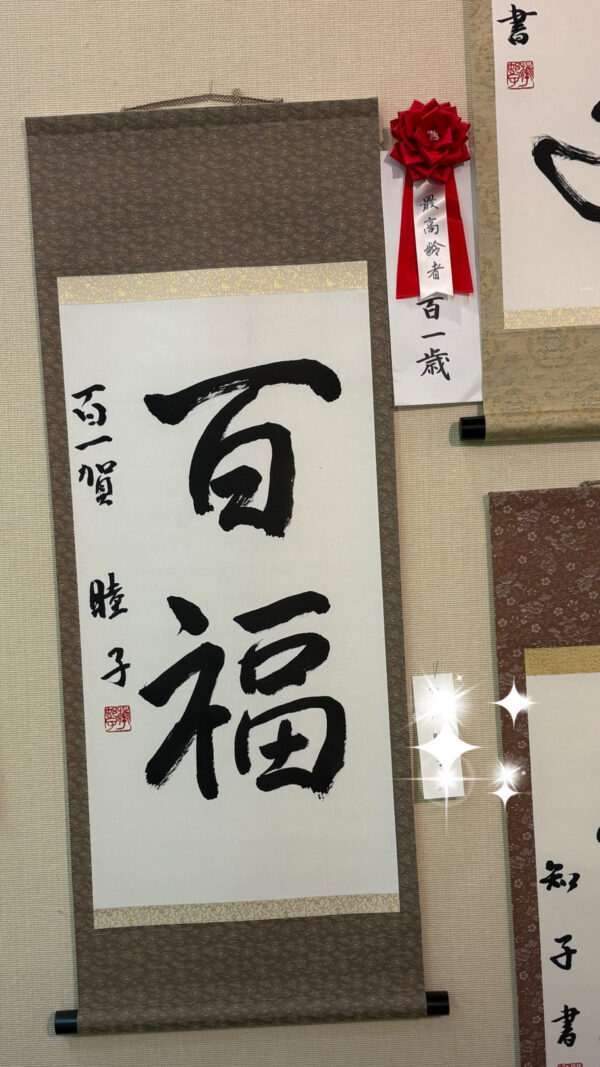 百福
百一賀 睦子
最高齢者
百一歳
書
知子書